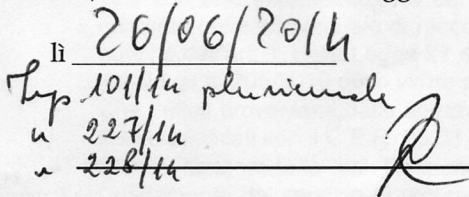 lì 26/06/2014
Imp 101/14 pluriennale
" 227/14
" 228/14